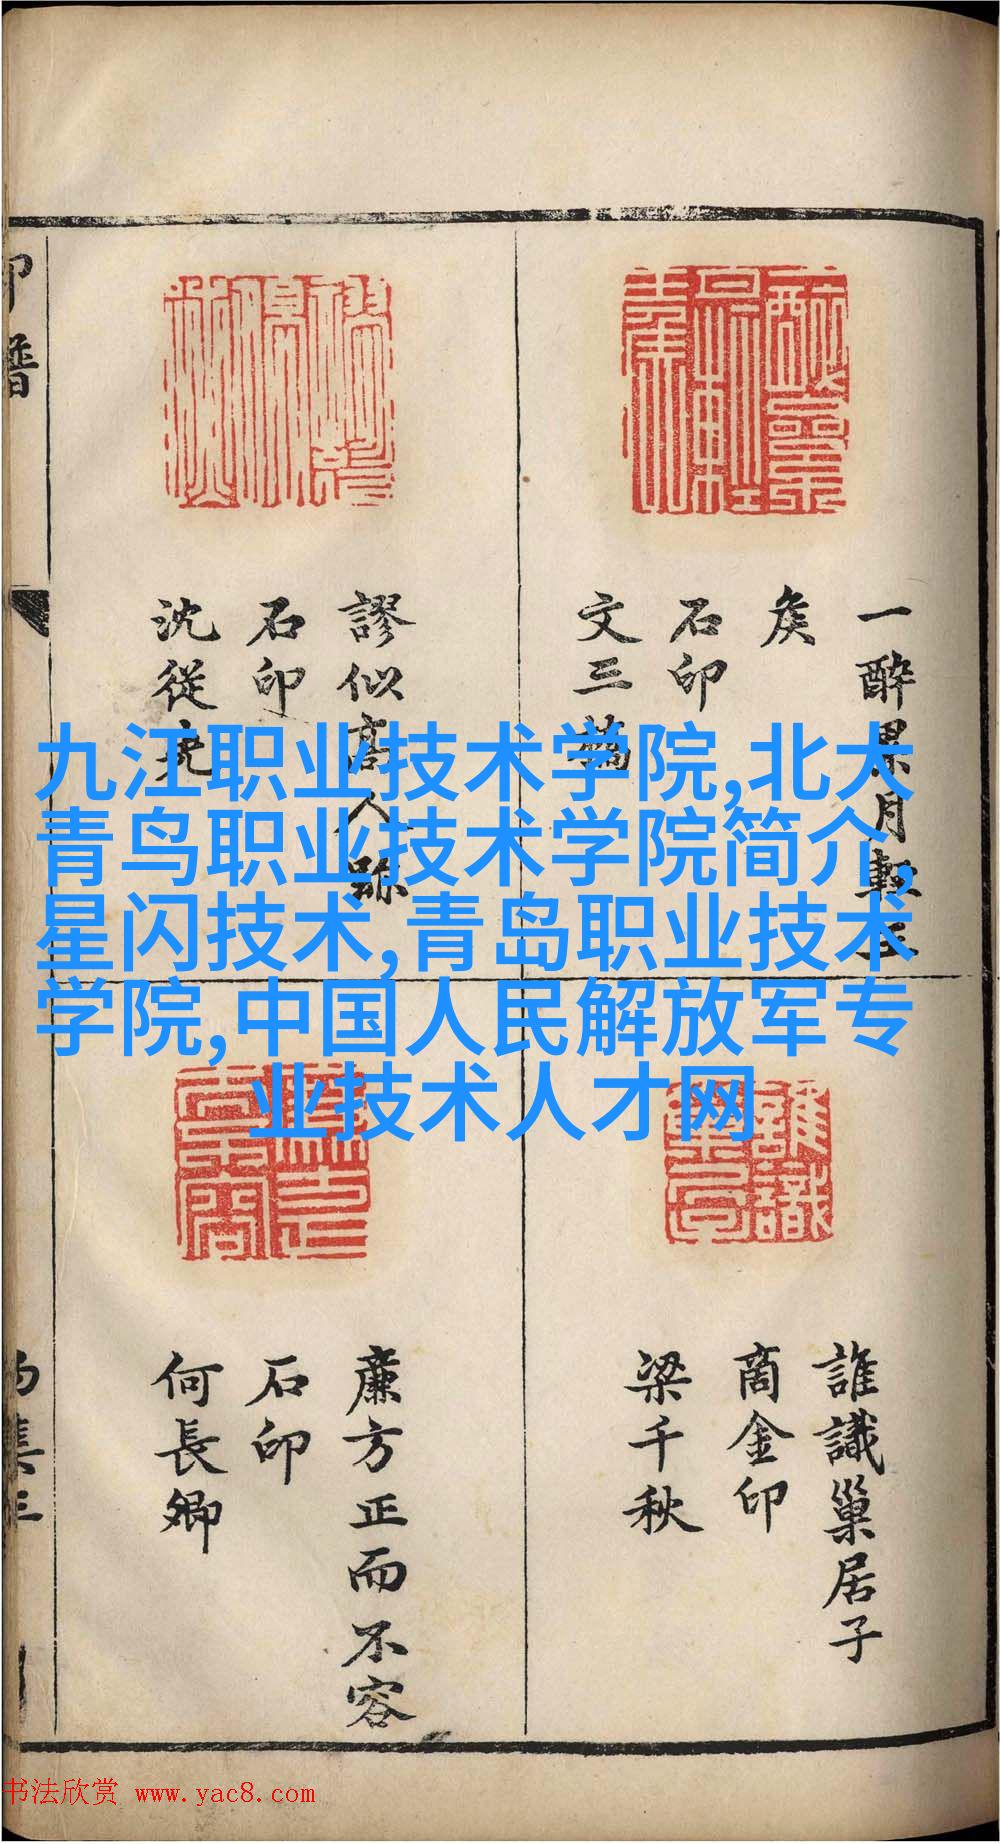 一醉累月輕王
矦
石印
文三橋
謬似髙人跡
石印
沈從先
九江职业技术学院,北大
青鸟职业技术学院简介,
星闪技术,青岛职业技术
学院,中国人民解放军专
业技术人才网
誰識巢居子
商金印
梁千秋
廉方正而不容
石印
何長卿
印譜
书法欣赏 www.yac8.com